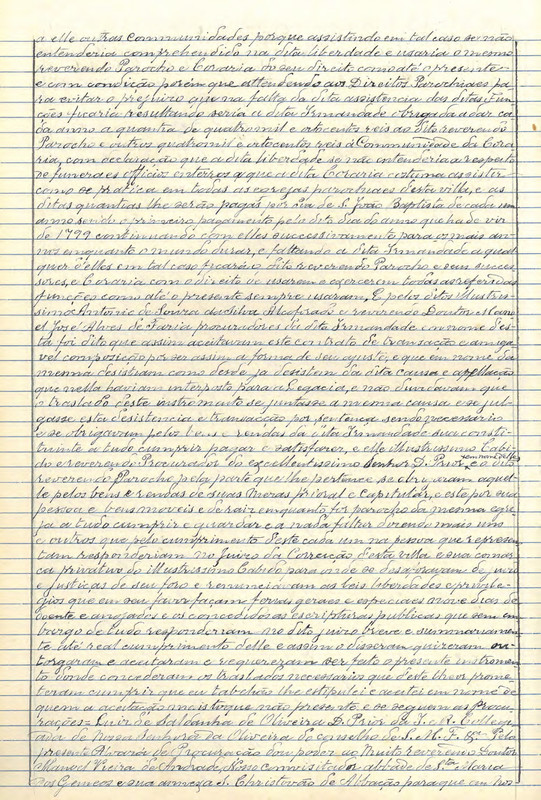 a elle outras communidades porque assistindo em tal caso se não
entenderia comprehendido na dita liberdade e usaria o mesmo
reverendo Parocho e Coraria do seu direito como até o presente
e com condição porém que attendendo aos Direitos Parochiaes pa-
ra evitar o prejuizo que na falta da dita assistencia das ditas fun-
ções ficaria resultando seria a dita Irmandade obrigada a dar ca-
da anno a quantia de quatro mil e oitocentos reis ao dito reverendo
Parocho e outros quatro mil e oitocentos reis á Communidade da Cora-
ria, com declaração que a dita liberdade se não entenderia a respeito
de funeraes officios enterros a que a dita Coraria costuma assistir
como se pratica em todas as egrejas parochiaes desta villa, e as
ditas quantias lhe serão pagas por dia de S. João Baptista de cada um
anno sendo o primeiro pagamento pelo dito dia do anno que ha de vir
de 1799 continuando com elles successivamente para os mais an-
nos emquanto o mundo durar, e faltando a dita Irmandade a qual-
quer d'elles em tal caso ficará o dito reverendo Parocho e seus succes-
sores, e Coraria com o direito de usarem e exercerem todas as referidas
funcções como até o presente sempre usaram. E pelos ditos Illustris-
simo Antonio de Souza da Silva Alcoforado e reverendo Doutor Mano-
el José Alves de Faria procuradores da dita Irmandade em nome d'es-
ta foi dito que assim aceitavam este contrato de transacção e amiga-
vel composição por ser assim a forma de seu ajuste, e que em nome da
mesma desistiam como desde já desistem da dita causa e appellação
que nella haviam interposto para a Legacia, e não duvidavam que
o traslado d'este instrumento se juntasse a mesma causa e se jul-
gasse esta desistencia e transacção por sentença sendo necessario
e se obrigavam pelos bens e rendas da dita Irmandade sua consti-
tuinte a tudo cumprir pagar e satisfazer, e elle Illustrissimo Cabi-
do e reverendo Procurador do excellentissimo Senhor D. Prior, e o dito
reverendo Parocho pela parte que lhe pertence se obrigaram aquel-
le pelos bens e rendas de suas Mesas prioral e Capitular, e este por sua
pessoa e bens moveis e de raiz emquanto for parocho da mesma egre-
ja a tudo cumprir e guardar e a nada faltar devendo mais uns
e outros que pelo cumprimento d'este cada um na pessoa que represen-
tam responderiam no Juizo da Correição d'esta villa e sua comar-
ca privativo do Illustrissimo Cabido para onde se desaforavam de juizo
e justiças de seu foro e renunciavam as leis liberdades e privile-
gios que em seu favor façam ferias geraes e especiaes nove dias de
doente e anojados e os concedidos as escripturas publicas que sem em-
bargo de tudo responderiam no dito juizo breve e summariamen-
te até real cumprimento d'elle e assim o disseram quizeram ou-
torgaram e aceitaram e requereram ser feito o presente instrumen-
to donde concederam os traslados necessarios que d'este theor prome-
teram cumprir que eu tabelião lhe estipulei e aceitei em nome de
quem a aceitação mais toque não presente e se seguem as Procu-
rações = Luiz de Saldanha de Oliveira D. Prior da I. e R. Colle-
giada de Nossa Senhora da Oliveira do conselho de S. M. F. &ª Pelo
presente Alvará de Procuração dou poder ao Muito reverendo Doutor
Manoel Vieira de Andrade, Nosso comvisitador abbade de Sta Maria
dos Gemeos e sua annexa de Christovão de Abbação para que em nos-